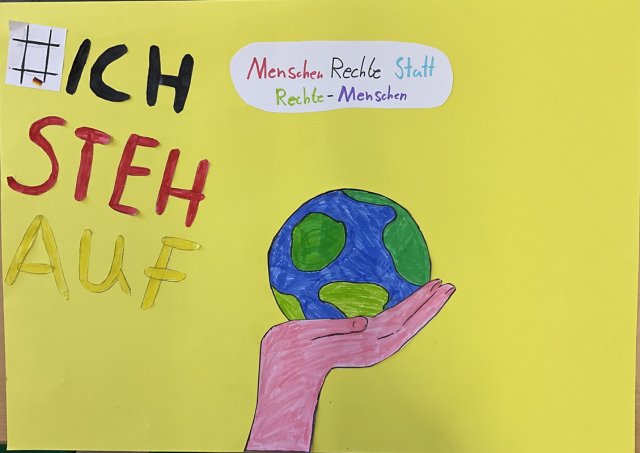 #ICH
STEH
AUF
Menschen Rechte Statt
Rechte-Menschen